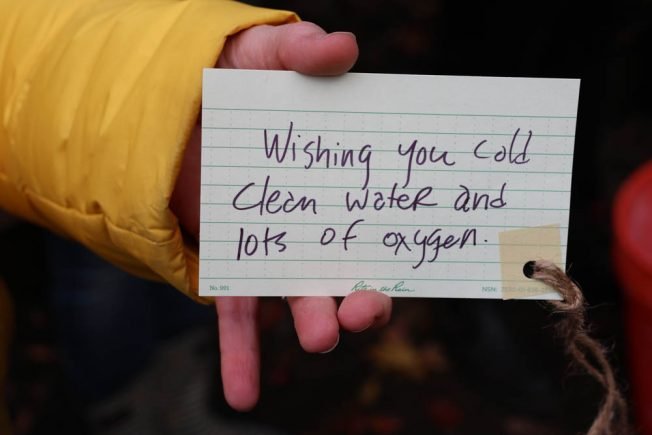 Wishing you cold
Clean water and
lots of oxygen.
No. 991
Rite in the Rain
NSN: